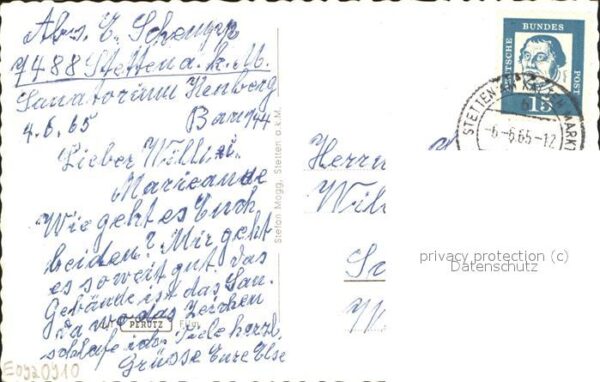 Abs. E. Schenzyk
7488 Stetten a. k. M.
Sanatorium Henberg
4.6.65 Bau 144
Lieber Willi u.
Marianne
Wie geht es Euch
beiden? Mir geht
es soweit gut. Das
Gebäude ist das San.
Da wo das Zeichen
schlafe ich. Viele herzl.
Grüsse Eure Else
Stefan Mogg, Stetten a.k.M.
PERUTZ
Herrn
Will
DEUTSCHE
BUNDES
POST
15
STETTEN
MARKT
-6.-6.65-12
privacy protection (c)
Datenschutz
E0920910